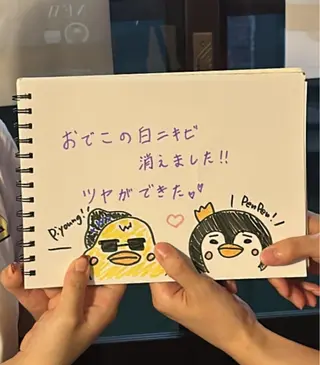 おでこの白ニキビ
消えました!!
ツヤができた♡♡
P.Young!!
PenPen!